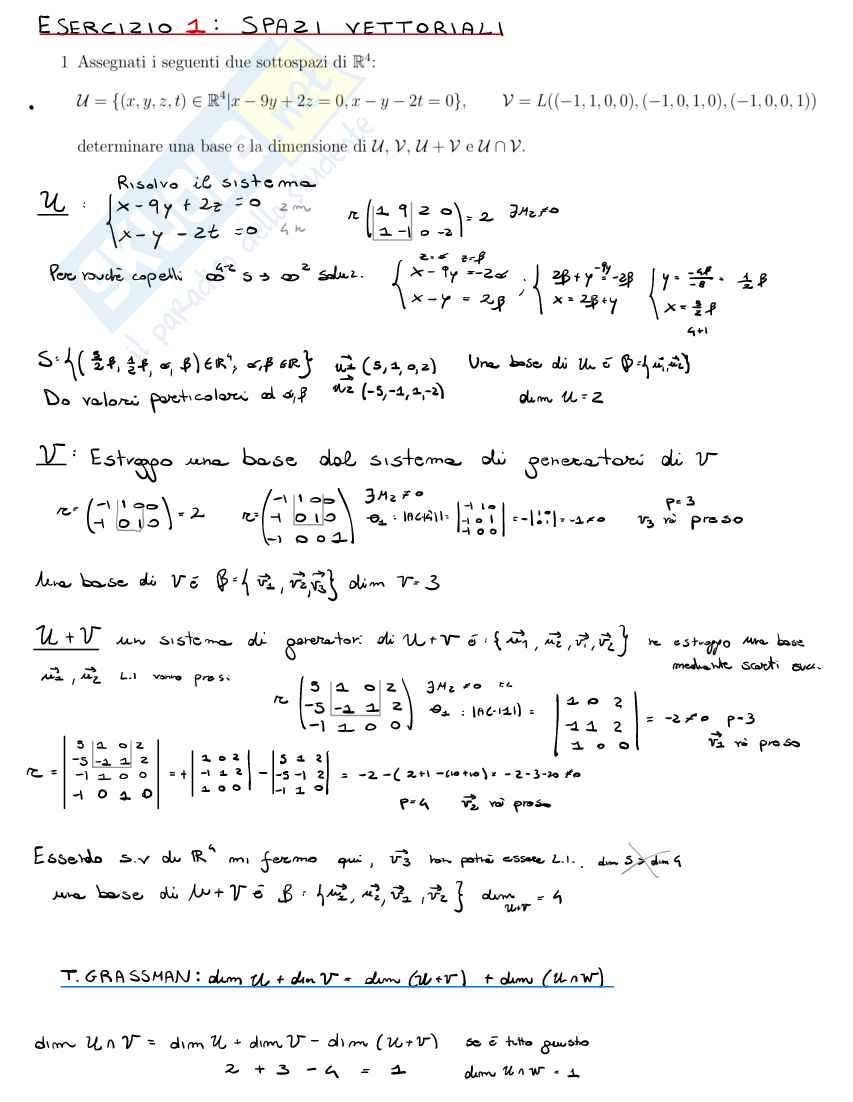 ESERCIZIO 1: SPAZI VETTORIALI
1 Assegnati i seguenti due sottospazi di ℝ⁴:
𝒰 = {(x, y, z, t) ∈ ℝ⁴|x − 9y + 2z = 0, x − y − 2t = 0}, 𝒱 = L((−1, 1, 0, 0), (−1, 0, 1, 0), (−1, 0, 0, 1))
determinare una base e la dimensione di 𝒰, 𝒱, 𝒰 + 𝒱 e 𝒰 ∩ 𝒱.
Risolvo il sistema
U : { x − 9y + 2z = 0
x − y − 2t = 0
r (1 9 2 0
1 −1 0 −2) = 2 ∃M2 ≠ 0
Per rouchè capelli ∞⁴⁻² s → ∞² soluz.
{ x − 9y = −2α
x − y = 2β ;
x = 2β + y
S = {( β, 1/2 β, α, β) ∈ ℝ⁴, α, β ∈ ℝ} u1 (5, 1, 0, 2) Una base di U è β = {u1, u2}
Do valori particolari ad α, β u2 (−5, −1, 1, −2) dim U = 2
V : Estraggo una base dal sistema di generatori di V
r = (−1 1 0 0
−1 0 1 0) = 2
r = (−1 1 0 0
−1 0 1 0
−1 0 0 1) ∃M2 ≠ 0
= −1 ≠ 0 p = 3
v3 va preso
Una base di V è β = {v1, v2, v3} dim V = 3
U + V un sistema di generatori di U + V è : {u1, u2, v1, v2} ne estraggo una base
mediante scarti succ.
u1, u2 L.I vanno presi
r (5 1 0 2
−5 −1 1 2
−1 1 0 0) ∃M2 ≠ 0
|1 0 2
−1 1 2
1 0 0| = −2 ≠ 0 p = 3
v1 va preso
r = |5 1 0 2
−5 −1 1 2
−1 1 0 0
−1 0 1 0| = + |1 0 2
−1 1 2
1 0 0| − |5 1 2
−5 −1 2
−1 1 0| = −2 − (2 + 1 − (10 + 10) = −2 − 3 − 20 ≠ 0
p = 4 v2 va preso
Essendo s.v di ℝ⁴ mi fermo qui, v3 non potrà essere L.I. dim 5 > dim 4
una base di U + V è β = {u1, u2, v1, v2} dim U+V = 4
T. GRASSMAN: dim U + dim V = dim (U + V) + dim (U ∩ W)
dim U ∩ V = dim U + dim V − dim (U + V) se è tutto giusto
2 + 3 − 4 = 1 dim U ∩ W = 1